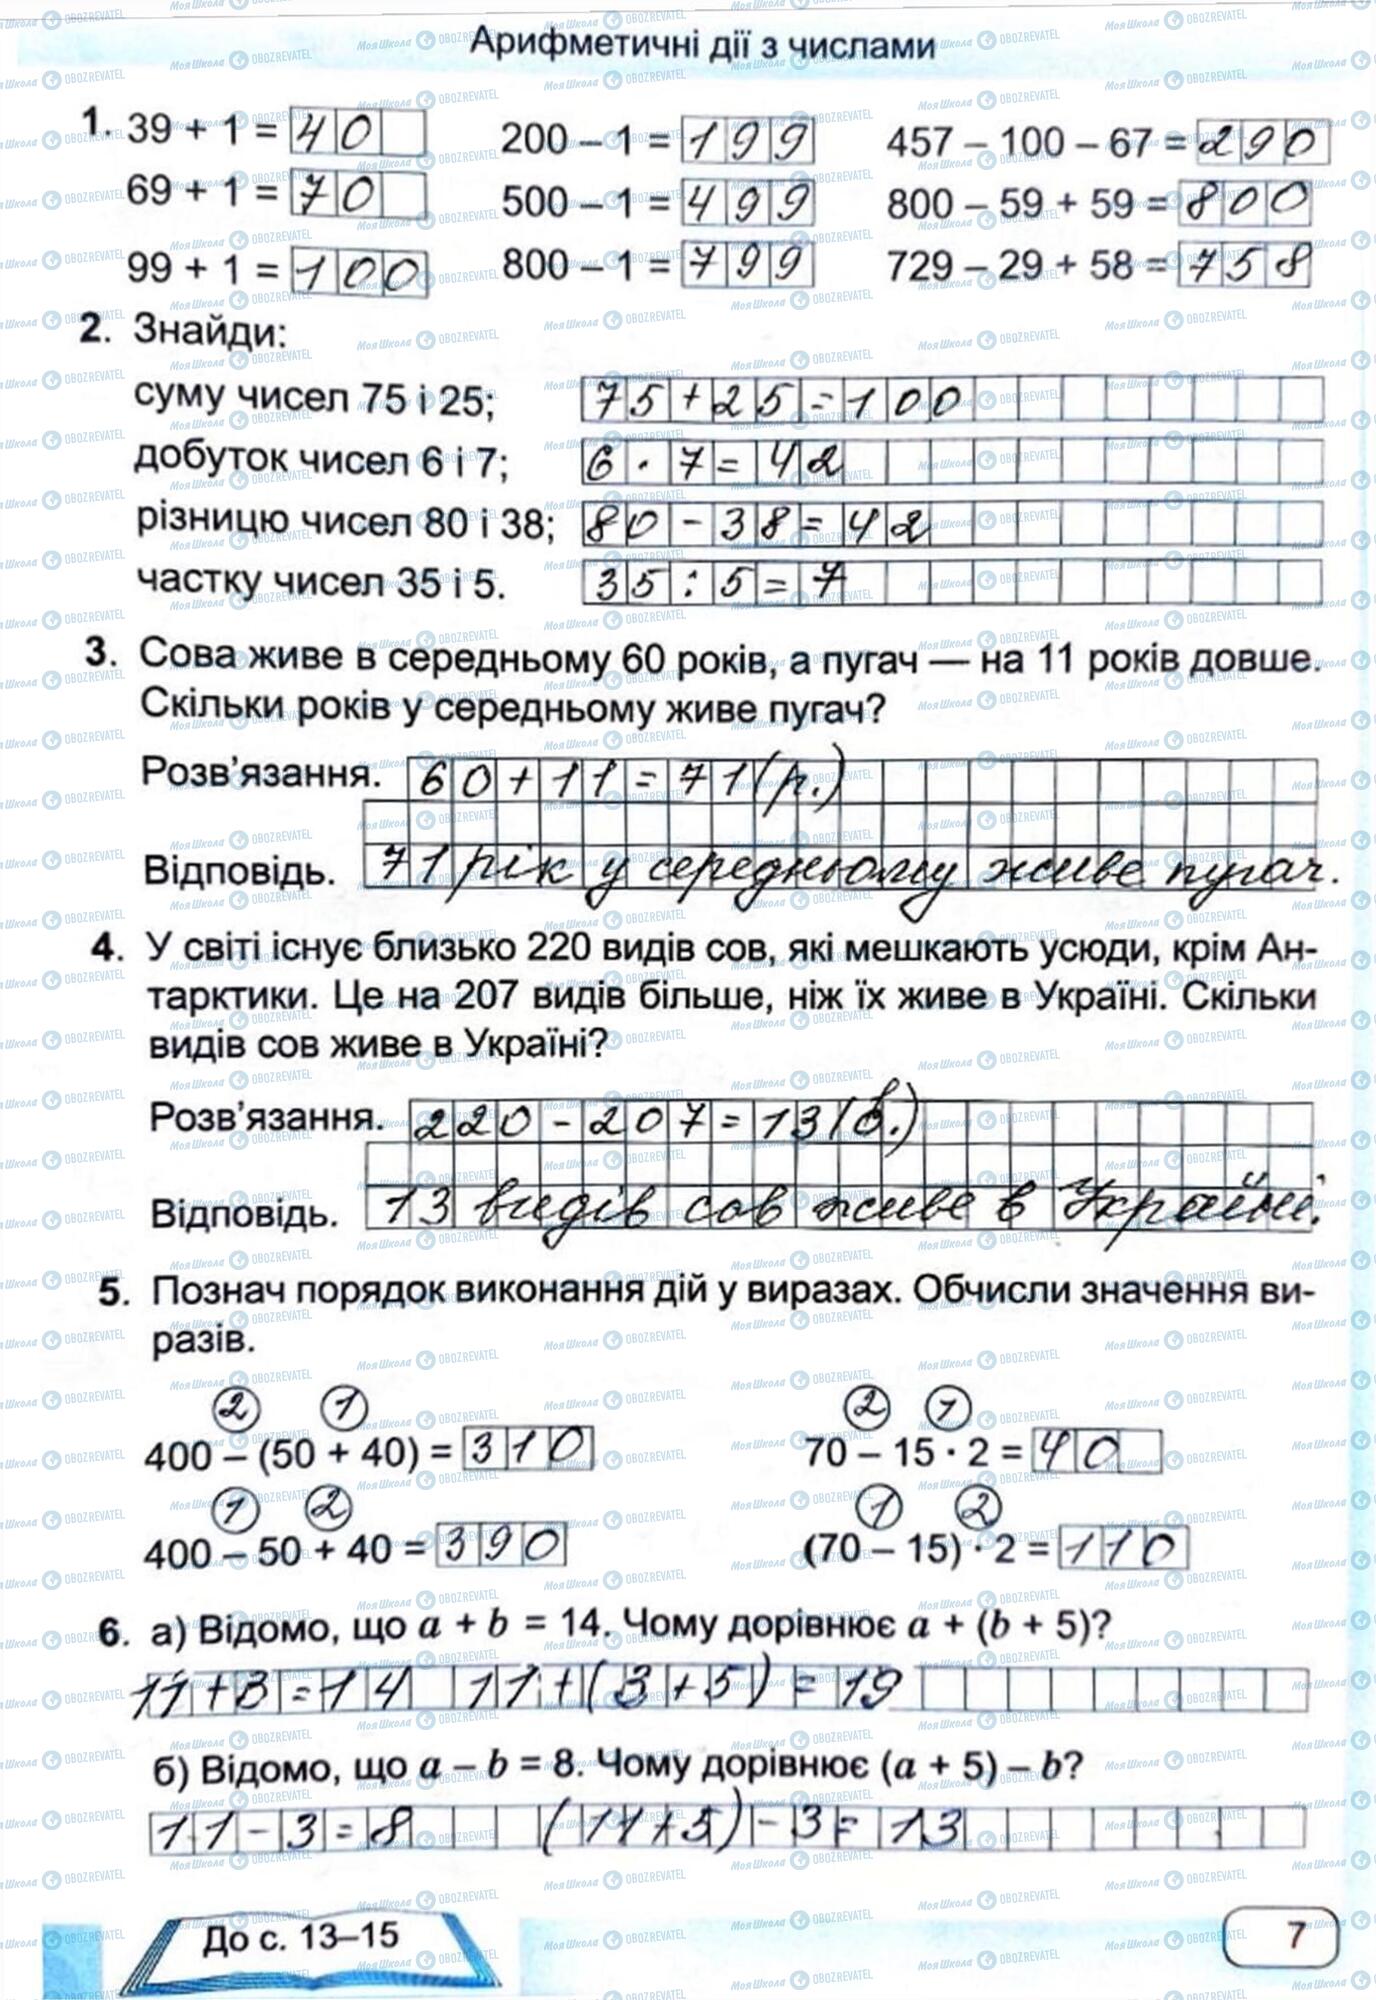 Арифметичні дії з числами
1. 39 + 1 = 40 200 – 1 = 199 457 – 100 – 67 = 290
69 + 1 = 70 500 – 1 = 499 800 – 59 + 59 = 800
99 + 1 = 100 800 – 1 = 799 729 – 29 + 58 = 758
2. Знайди:
суму чисел 75 і 25; 75+25=100
добуток чисел 6 і 7; 6·7=42
різницю чисел 80 і 38; 80-38=42
частку чисел 35 і 5. 35:5=7
3. Сова живе в середньому 60 років, а пугач — на 11 років довше.
Скільки років у середньому живе пугач?
Розв'язання. 60+11=71(р.)
Відповідь. 71 рік у середньому живе пугач.
4. У світі існує близько 220 видів сов, які мешкають усюди, крім Ан-
тарктики. Це на 207 видів більше, ніж їх живе в Україні. Скільки
видів сов живе в Україні?
Розв'язання. 220-207=13(в.)
Відповідь. 13 видів сов живе в Україні.
5. Познач порядок виконання дій у виразах. Обчисли значення ви-
разів.
2 1 2 1
400 – (50 + 40) = 310 70 – 15 · 2 = 40
1 2 1 2
400 – 50 + 40 = 390 (70 – 15) · 2 = 110
6. а) Відомо, що a + b = 14. Чому дорівнює a + (b + 5)?
11+3=14 11+(3+5)=19
б) Відомо, що a – b = 8. Чому дорівнює (a + 5) – b?
11-3=8 (11+5)-3=13
До с. 13–15
7
Моя Школа OBOZREVATEL